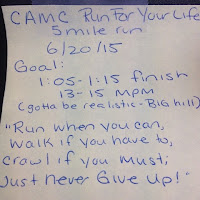 CAMC Run For Your Life
5 mile run
6/20/15
Goal:
1:05-1:15 finish
13-15 mpm
(gotta be realistic - BIG hill)
"Run when you can,
walk if you have to,
crawl if you must;
Just never Give Up!"